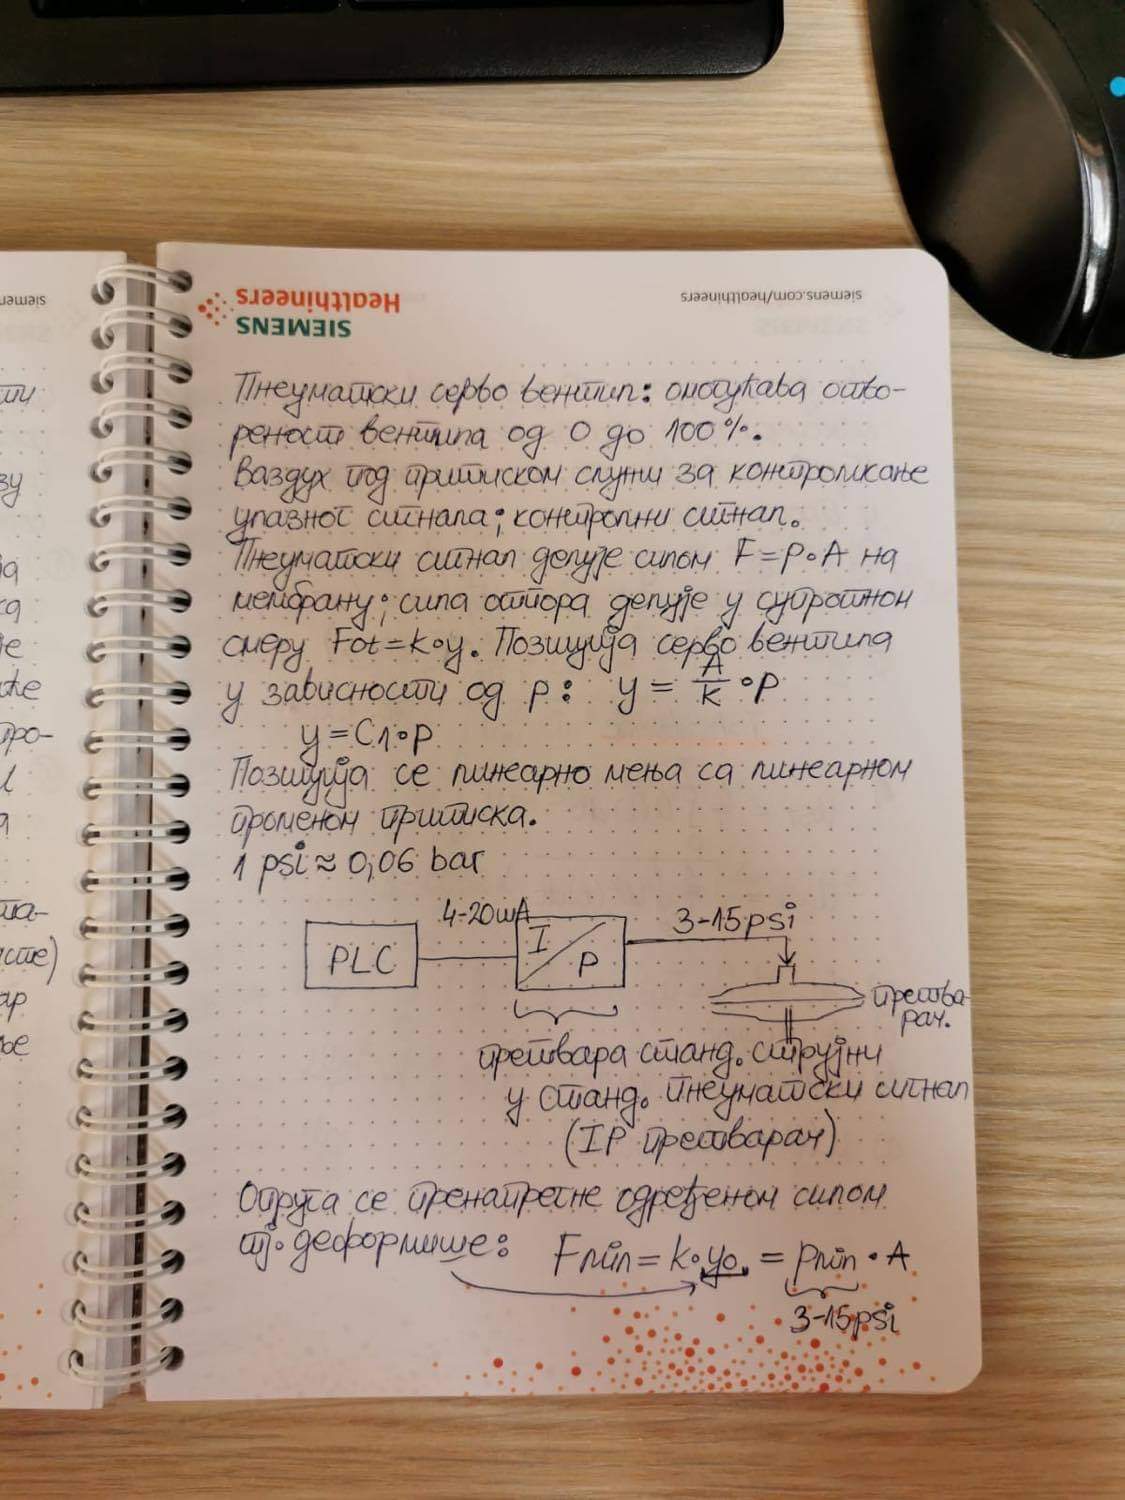 siemens.com/healthineers
SIEMENS
Healthineers
Пнеуматски серво вентил: омогућава отво-
реност вентила од 0 до 100%.
Ваздух под притиском служи за контролисање
улазног сигнала; контролни сигнал.
Пнеуматски сигнал делује силом F=p·A на
мембрану; сила отпора делује у супротном
смеру Fot=k·y. Позиција серво вентила
у зависности од p: y = A/k · p
y=C1·p
Позиција се линеарно мења са линеарном
променом притиска.
1 psi ≈ 0,06 bar
4-20mA
3-15psi
PLC
I/P
претва-
рач.
претвара станд. струјни
у станд. пнеуматски сигнал
(IP претварач)
Опруга се пренапрегне одређеном силом
тј. деформише: Fmin = k·y0 = pmin · A
3-15psi